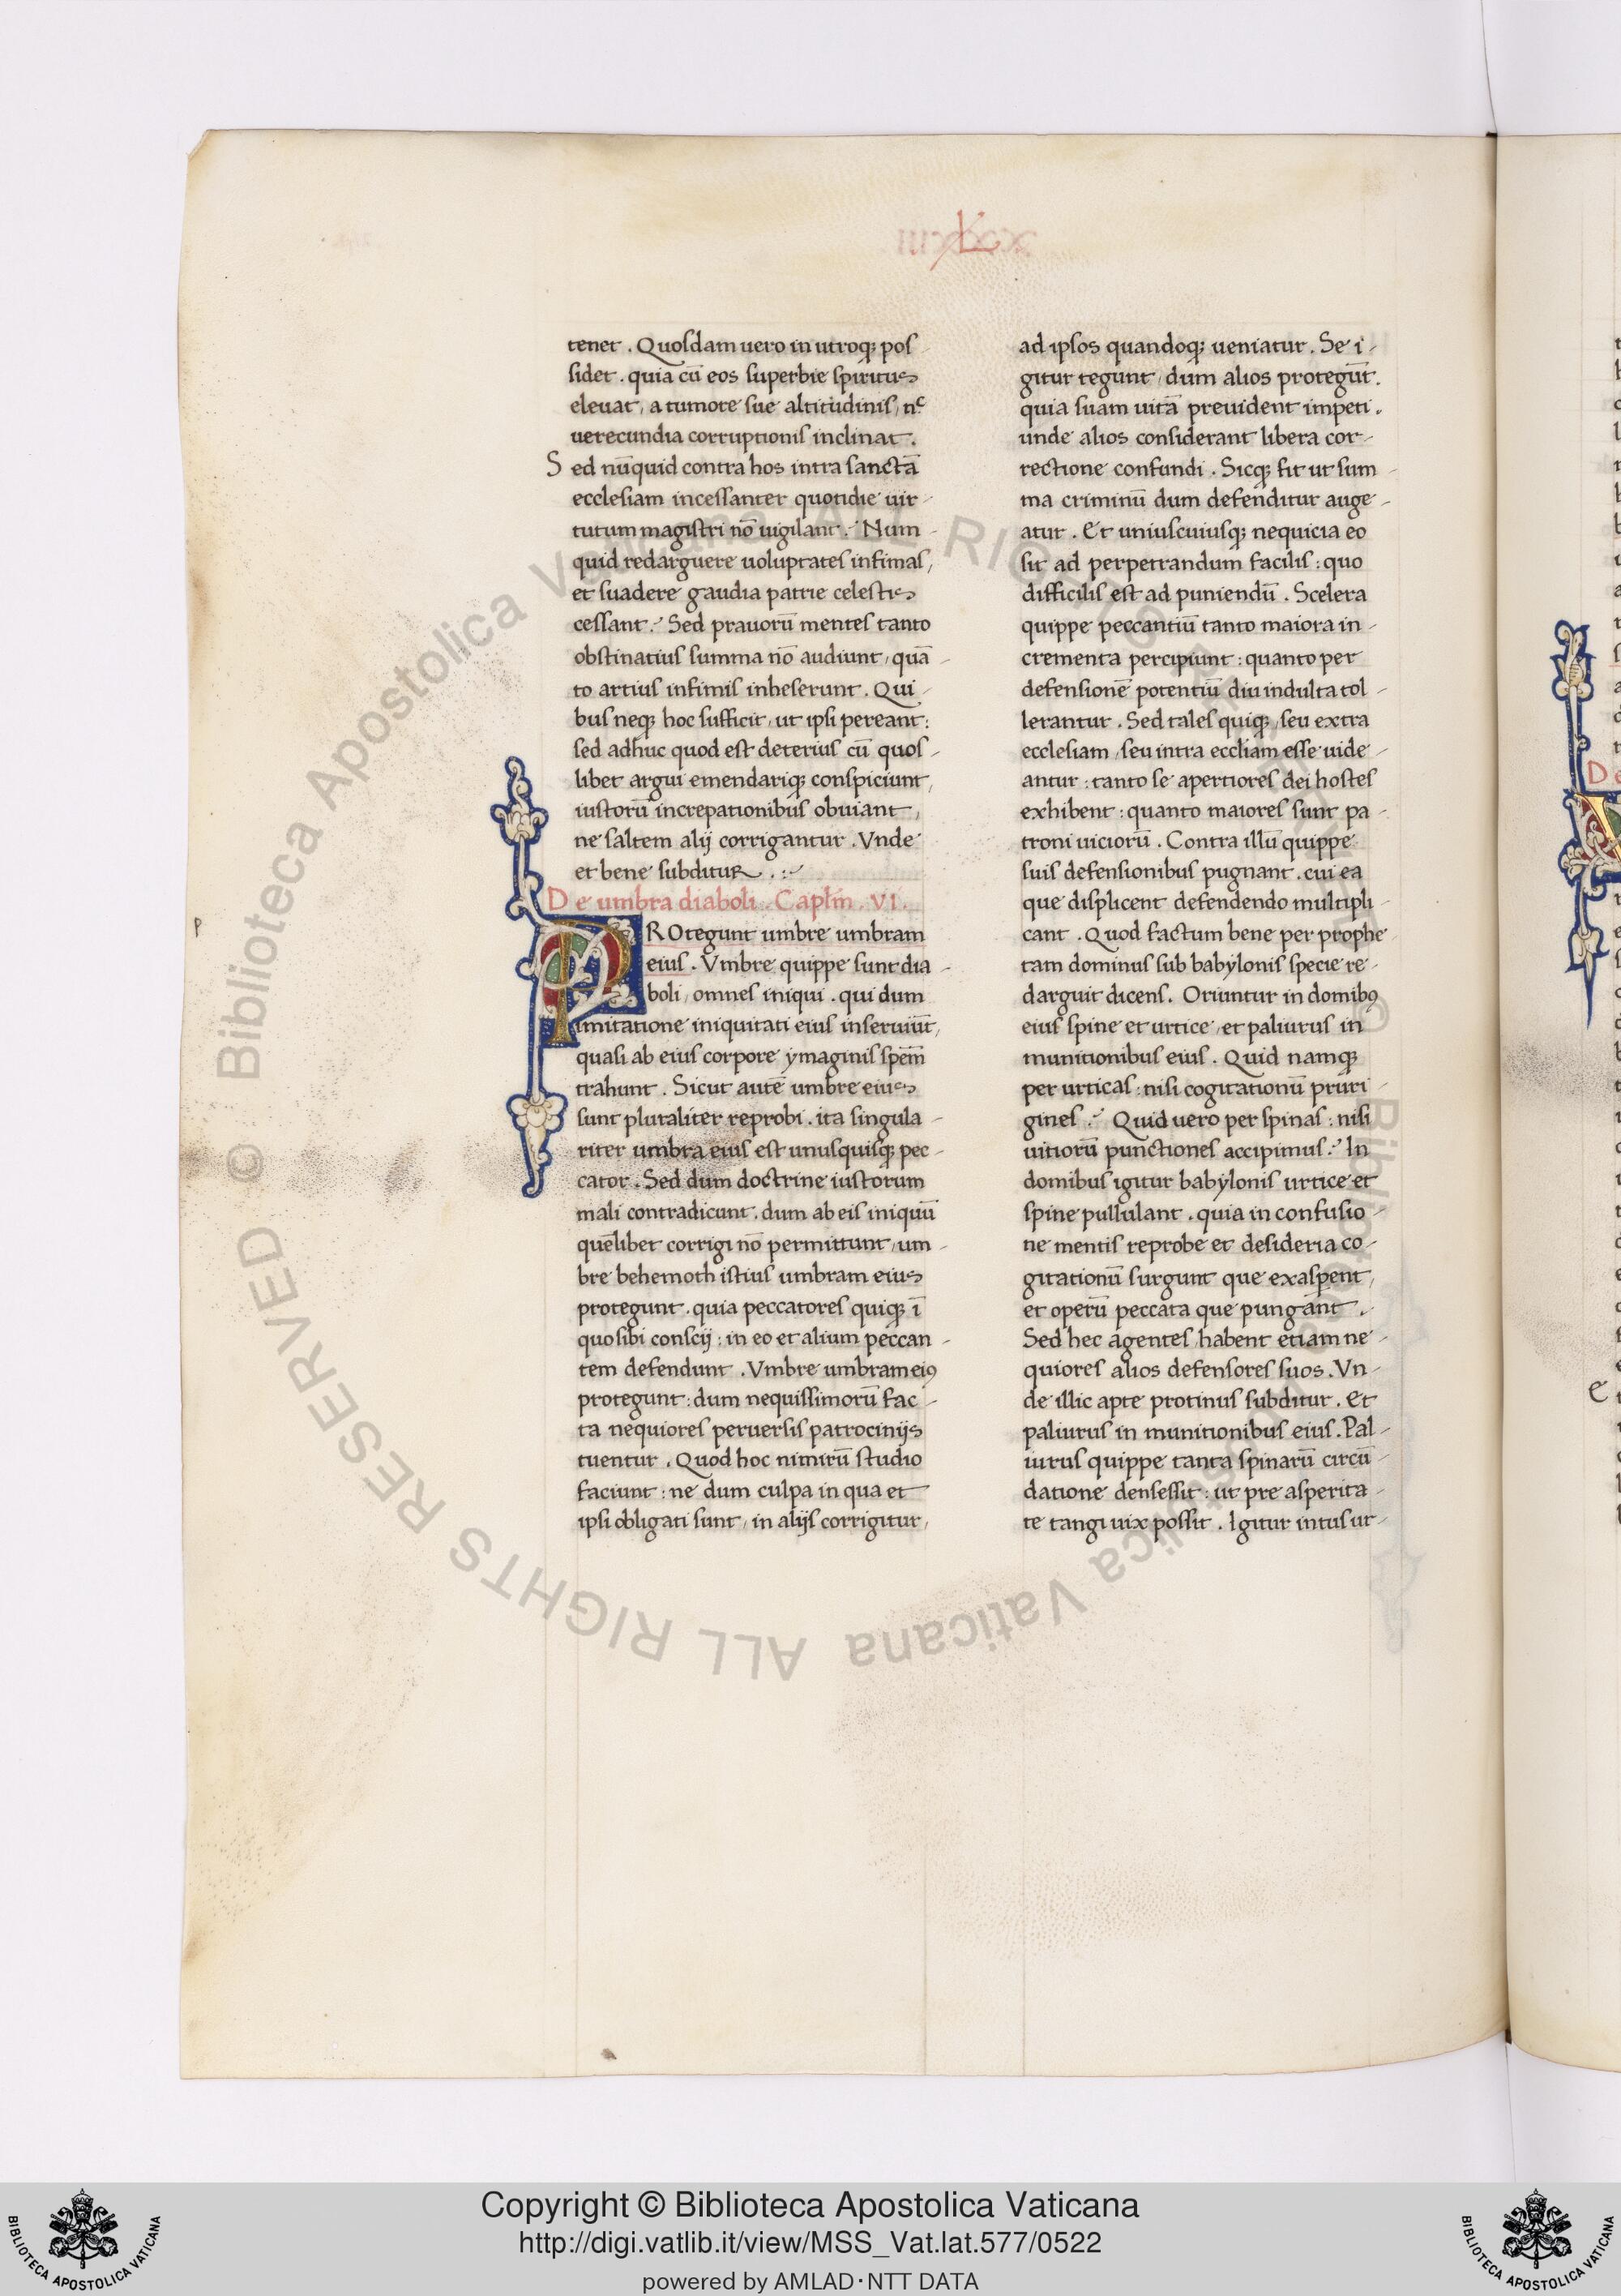 L
tenet . Quosdam uero in utroq; pos
sidet . quia cū eos superbie spiritus
eleuat, a tumore sue altitudinis, nᶜ
uerecundia corruptionis inclinat .
Sed nūquid contra hos intra sanctā
ecclesiam incessanter quotidie uir-
tutum magistri nō uigilant . Num-
quid redarguere uoluptates infimas,
et suadere gaudia patrie celestis
cessant . Sed prauorū mentes tanto
obstinatius summa nō audiunt, quā-
to artius infimis inheserunt . Qui-
bus neq; hoc sufficit, ut ipsi pereant:
sed adhuc quod est deterius cū quos-
libet argui emendariq; conspiciunt,
iustorū increpationibus obuiant,
ne saltem alij corrigantur . Vnde
et bene subditur . :~
De umbra diaboli . Caplm̄ . VI .
PROtegunt umbre umbram
eius . Vmbre quippe sunt dia-
boli, omnes iniqui . qui dum
imitatione iniquitati eius inseruiūt,
quasi ab eius corpore ymaginis spēm
trahunt . Sicut autē umbre eius
sunt pluraliter reprobi . ita singula-
riter umbra eius est unusquisq; pec-
cator . Sed dum doctrine iustorum
mali contradicunt . dum ab eis iniquū
quēlibet corrigi nō permittunt, um-
bre behemoth istius umbram eius
protegunt . quia peccatores quiq; ī
quo sibi conscij : in eo et alium peccan-
tem defendunt . Vmbre umbram ei9
protegunt : dum nequissimorū fac-
ta nequiores peruersis patrocinijs
tuentur . Quod hoc nimirū studio
faciunt : ne dum culpa in qua et
ipsi obligati sunt, in alijs corrigitur,
ad ipsos quandoq; ueniatur . Se i-
gitur tegunt, dum alios protegūt .
quia suam uitā preuident impeti .
unde alios considerant libera cor-
rectione confundi . Sicq; fit ut sum-
ma criminū dum defenditur auge-
atur . Et uniuscuiusq; nequicia eo
sit ad perpetrandum facilis : quo
difficilis est ad puniendū . Scelera
quippe peccantiū tanto maiora in-
crementa percipiunt : quanto per
defensionē potentiū diu indulta tol-
lerantur . Sed tales quiq;, seu extra
ecclesiam, seu intra eccliam esse uide-
antur : tanto se apertiores dei hostes
exhibent : quanto maiores sunt pa-
troni uiciorū . Contra illū quippe
suis defensionibus pugnant . cui ea
que displicent defendendo multipli-
cant . Quod factum bene per prophe-
tam dominus sub babylonis specie re-
darguit dicens . Oriuntur in domib9
eius spine et urtice, et paliurus in
munitionibus eius . Quid namq;
per urticas : nisi cogitationū pruri-
gines . Quid uero per spinas : nisi
uitiorū punctiones accipimus . In
domibus igitur babylonis urtice et
spine pullulant . quia in confusio-
ne mentis reprobe et desideria co-
gitationū surgunt que exasperent,
et operū peccata que pungant .
Sed hec agentes, habent etiam ne-
quiores alios defensores suos . Vn-
de illic apte protinus subditur . Et
paliurus in munitionibus eius . Pal-
iurus quippe tanta spinarū circū-
datione densessit : ut pre asperita-
te tangi uix possit . Igitur intus ur-
P
Copyright © Biblioteca Apostolica Vaticana
http://digi.vatlib.it/view/MSS_Vat.lat.577/0522
powered by AMLAD·NTT DATA
BIBLIOTECA APOSTOLICA VATICANA
BIBLIOTECA APOSTOLICA VATICANA
© Biblioteca Apostolica Vaticana ALL RIGHTS RESERVED
© Biblioteca Apostolica Vaticana ALL RIGHTS RESERVED